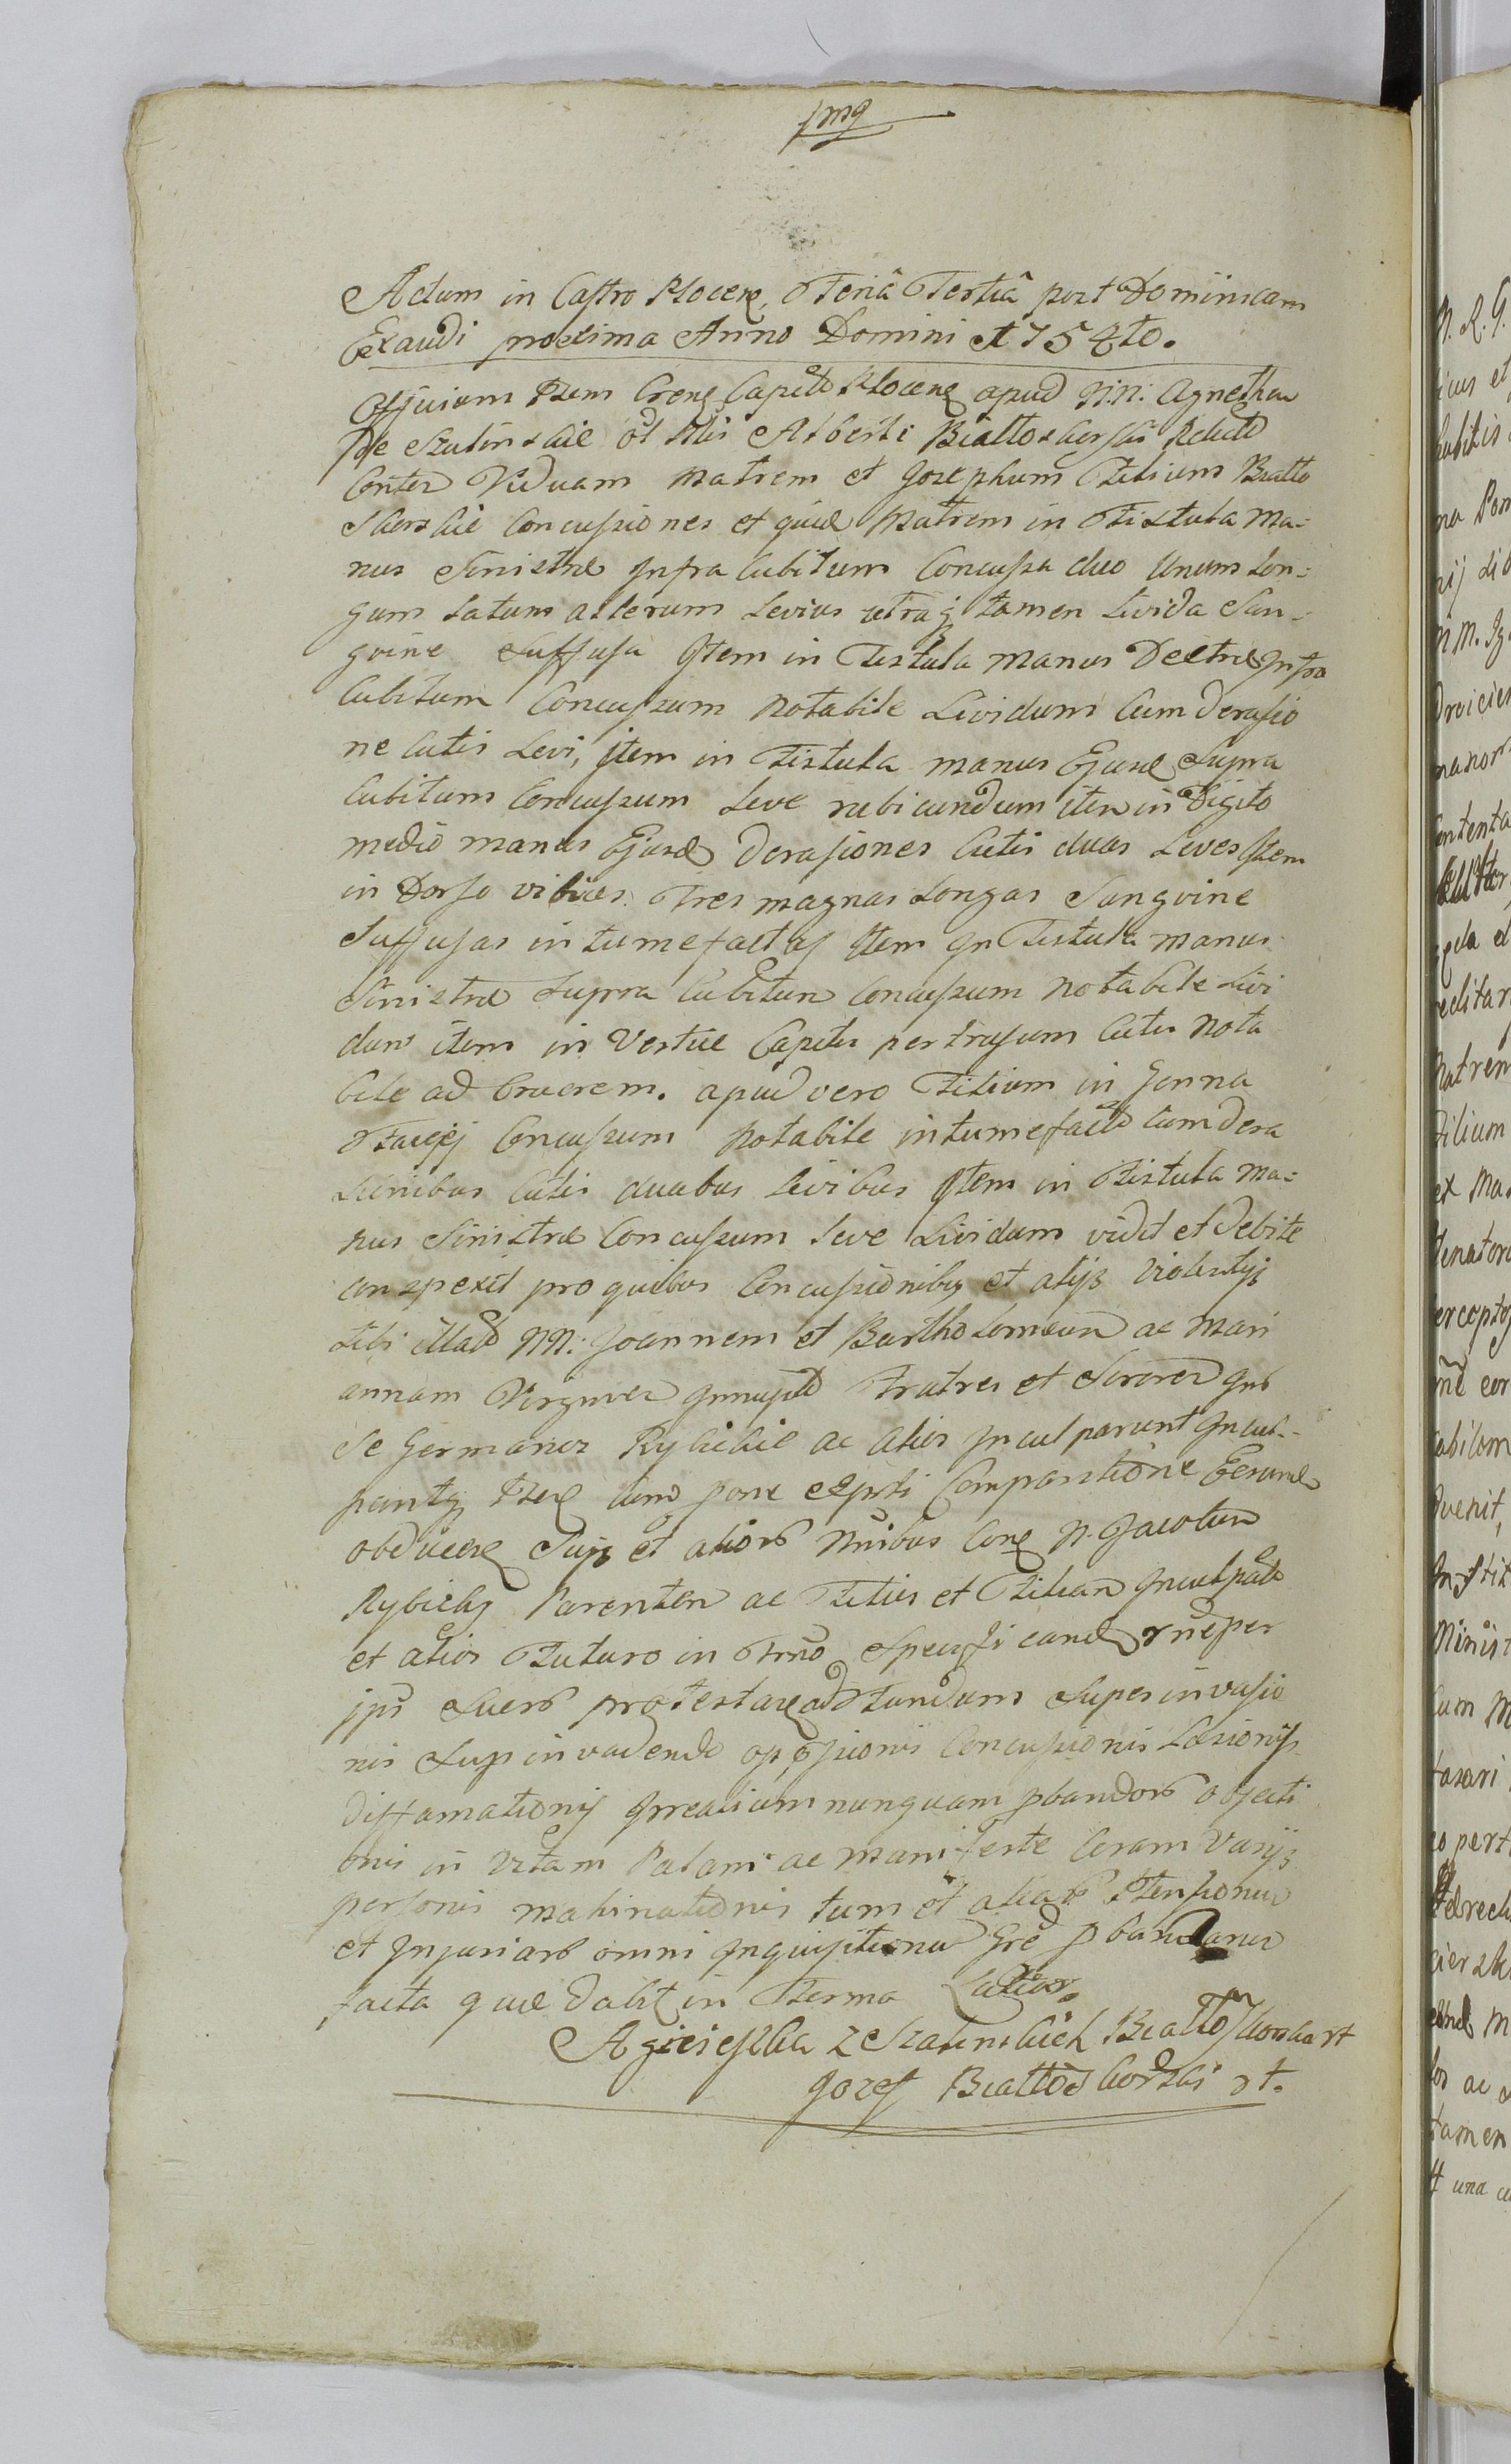 Actum in Castro Plocen, Feriâ Tertiâ post Dominicam
Exaudi proxima Anno Domini 1754to.
Officium Psens Crens Capit Plocens apud N.N. Agnetham
De Szulinskie ol Nlis Alberti Białłoskorski Relict
Conter Viduam Matrem et Josephum Filium Biallo
skorskie Concussiones et quid Matrem in Fistula Ma=
nus Sinistræ Infra Cubitum Concussa duo Unum Lon=
gum Latum alterum Levius utraq tamen Livida San-
guine Suffusa Item in Fistula Manus Dextræ Infra
Cubitum Concussum Notabile Lividum Cum Derasio
ne Cutis Levi, Item in Fistula manus Ejusd Supra
Cubitum Concussum Leve rubicundum item in Digito
medio manus Ejusd Derasiones Cutis duas Leves Item
in Dorso vibices Tres magnas Longas Sanguine
Suffusas intumefactas Item In Fistula manus
Sinistræ Supra Cubitum Concussum Notabile Livi
dum item in Vertice Capitis pertrusum Cutis Nota
bile ad Cruorem. apud vero Filium in Genna
Faciej Concussum Notabile intumefact Cum Dera
sionibus Cutis duabus Levibus Item in Fistula Ma=
nus Sinistræ Concussum Leve Lividum vidit et Debite
conspexit pro quibus Concussionibus et alijs Violentijs
sibi illat NN. Joannem et Bartholomeum ac Mari
annam Virginem Innupt Fratres et Sororem Int
Se Germanos Rybickie ac alios Inculparunt Incul-
pantq Psen cum pone expsti Comparitione Eorund
obducen Suis et alior Nnibus Con N. Jacobum
Rybicky Parentem ac Filios et Filiam Inculpat
et alios Futuro in Trno Specificand rne per
ips Suer protestare ad Fundum Super invasio
nis Sup invadendo oppssionis Concussionis Læsionis
diffamationis Irrealium nunquam pbandor objecti
onis in Vitam Palam ac manifeste Coram Varijs
personis machinationis tum et aliar Ofensionum
et Injuriar omni Inquisitione Gre pbandarum
facta quæ Dabit in Forma Latior.
Agnieszka z Szulinskich Białłoskorska rt
Jozef Białłoskorski rt.